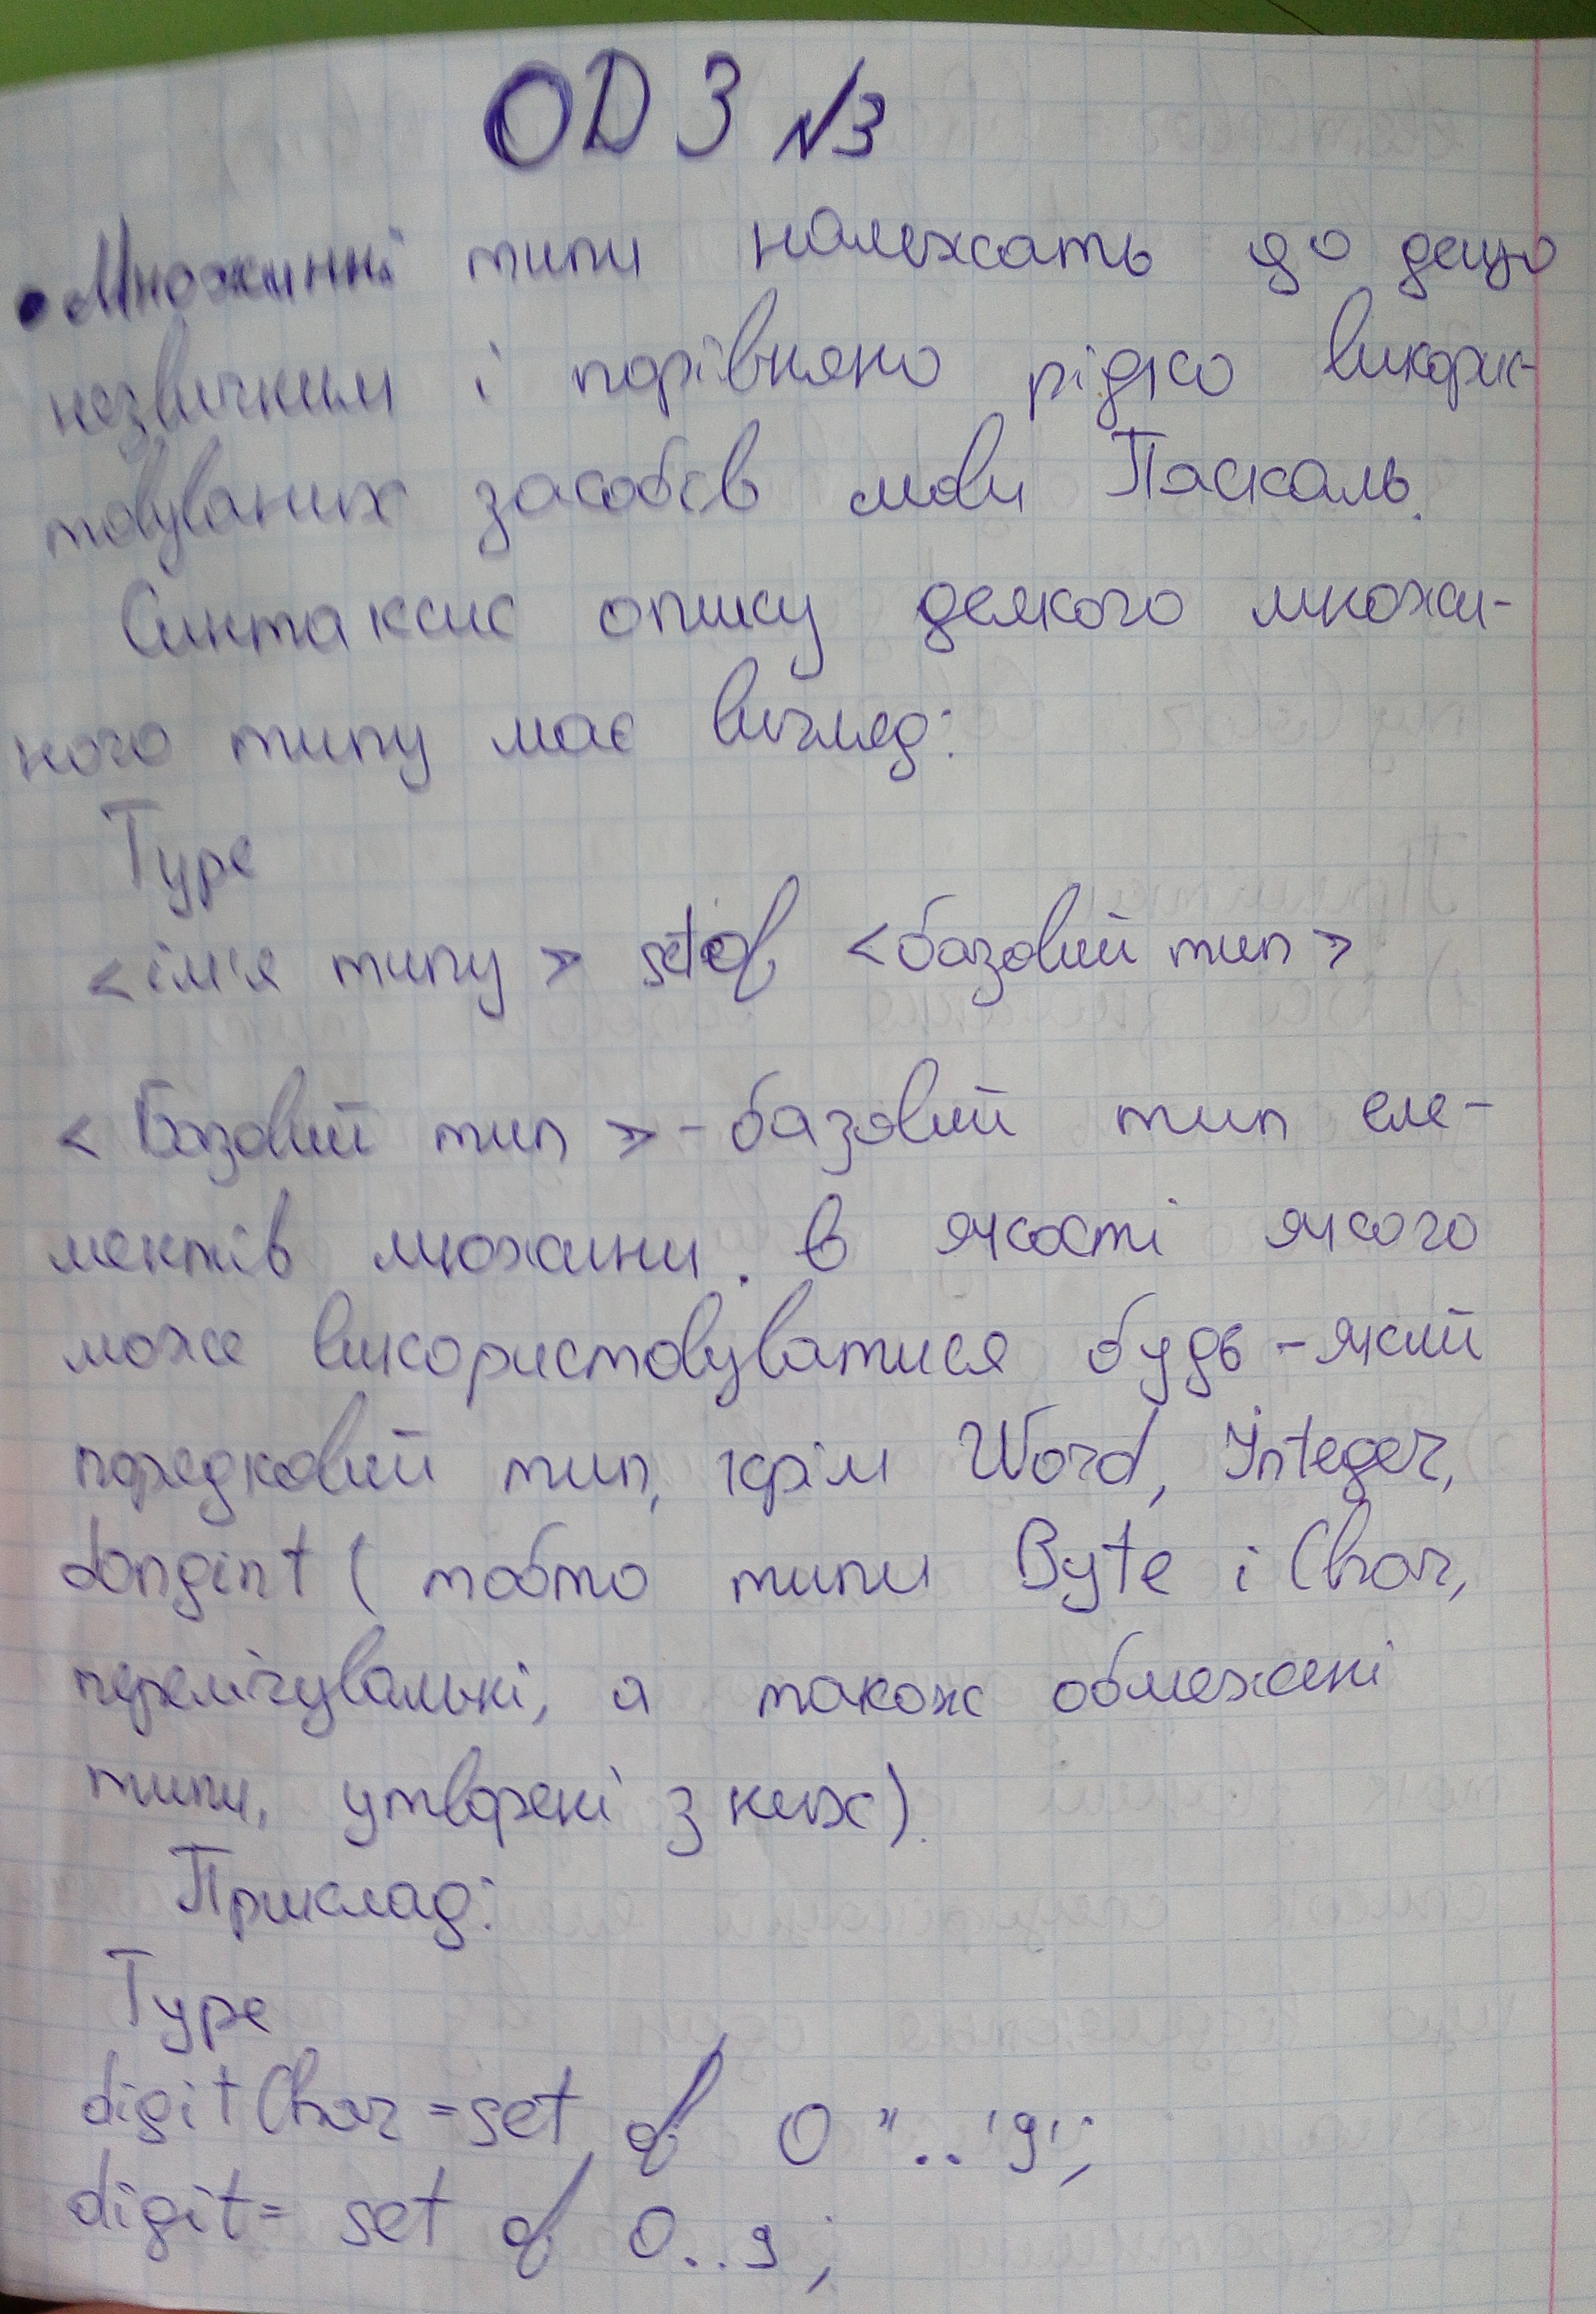 ОДЗ №3
• Множинні типи належать до дещо
незвичним і порівняно рідко викорис-
товуваних засобів мови Паскаль.
Синтаксис опису деякого множи-
ного типу має вигляд:
Type
<ім'я типу> set of <базовий тип>
<Базовий тип> - базовий тип еле-
ментів множини. в якості якого
може використовуватися будь-який
порядковий тип, крім Word, Integer,
Longint (тобто типи Byte і Char,
перелічувальні, а також обмежені
типи, утворені з них).
Приклад:
Type
digitChar =set of 0 "..'9';
digit= set of 0..9;